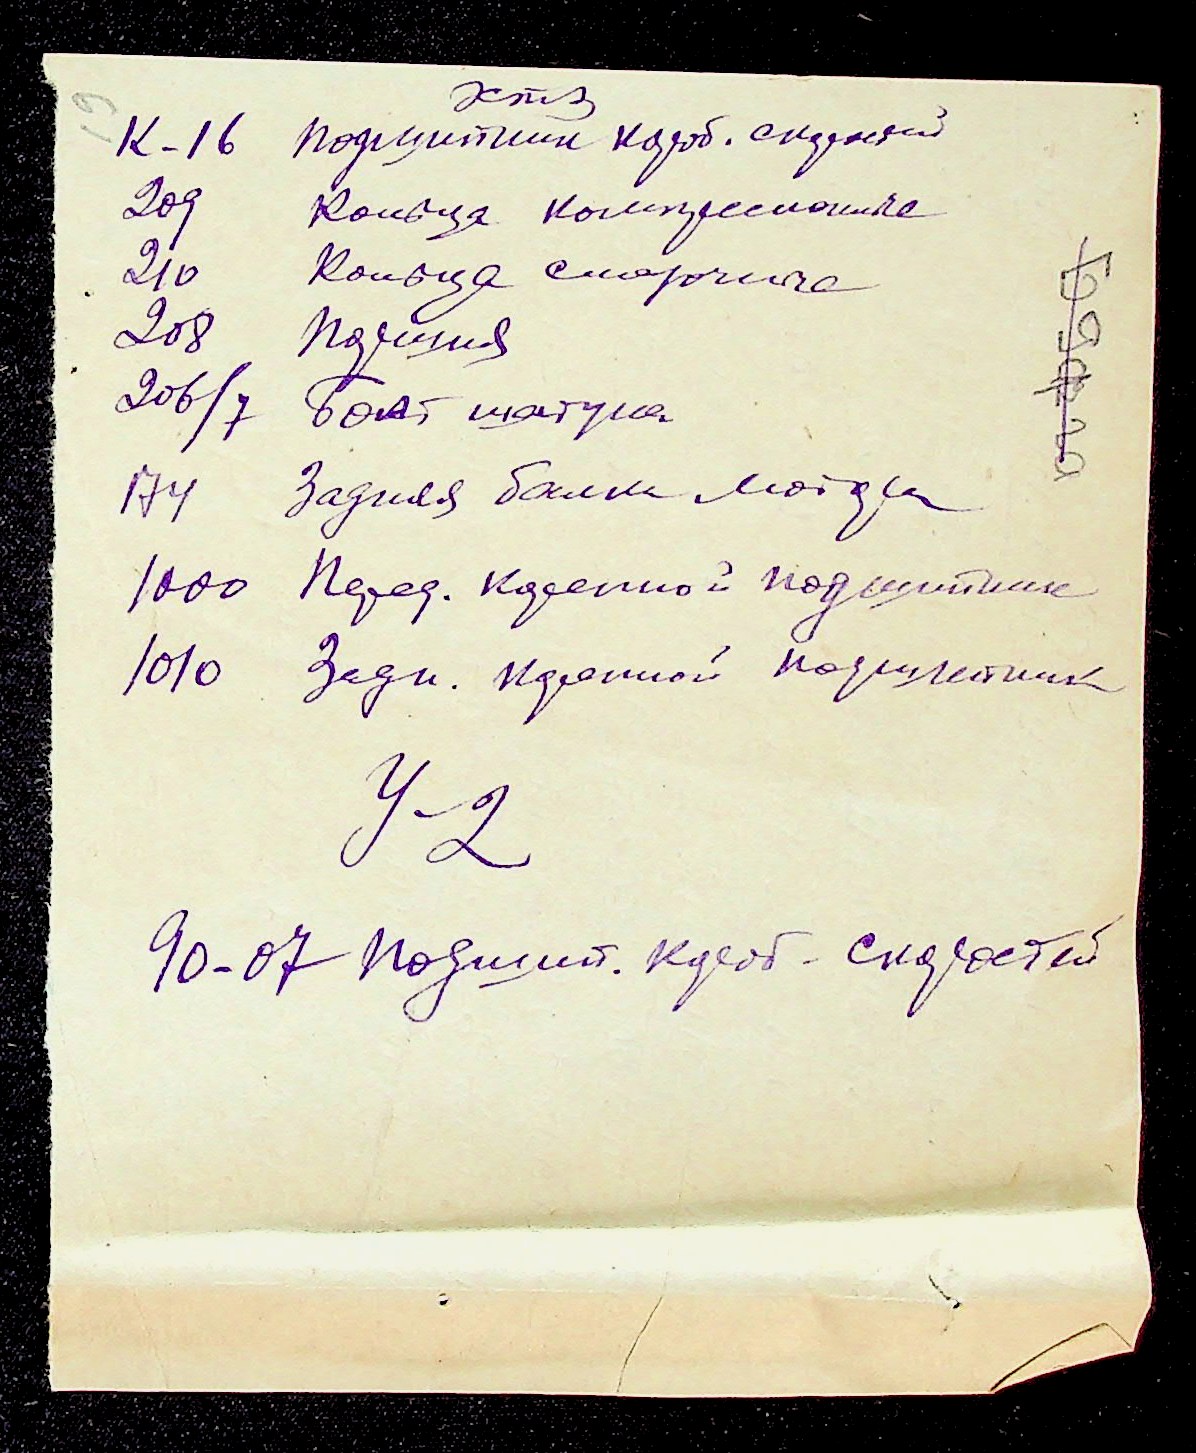 ХТЗ
К-16 Подшипник короб. скоростей
209 Кольца компрессионые
210 Кольца смазочные
208 Поршня
206/7 Болт шатуна
174 Задняя балка мотора
1000 Перед. коренной подшипник
1010 Задн. коренной подшипник
У-2
90-07 Подшип. короб. скоростей